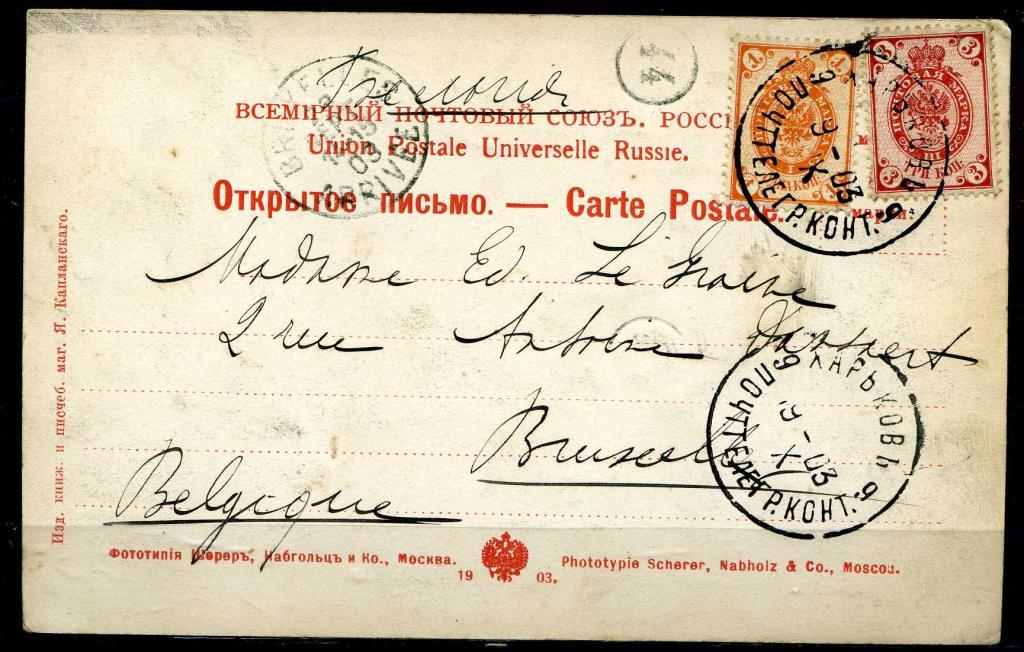 ВСЕМІРНЫЙ ПОЧТОВЫЙ СОЮЗЪ. РОСС
Union Postale Universelle Russie.
Открытое письмо. — Carte Postale.
марки.
ПОЧТОВАЯ МАРКА
3 3
ТРИ КОП.
1 1
МАР
КОП.
9 ПОЧТ.ТЕЛЕГР.КОНТ. 9
9-X 03
BRUXELLES
03
ARRIVEE
Madame Ed. Le Graive
2 rue Antoine Dansaert
Bruxelles
Belgique
ХАРЬКОВЪ
9 ПОЧТ.ТЕЛЕГР.КОНТ. 9
9-X 03
Изд. книж. и писчеб. маг. Я. Капланскаго.
Фототипія Шереръ, Набгольцъ и Ко., Москва.
19 03.
Phototypie Scherer, Nabholz & Co., Moscou.